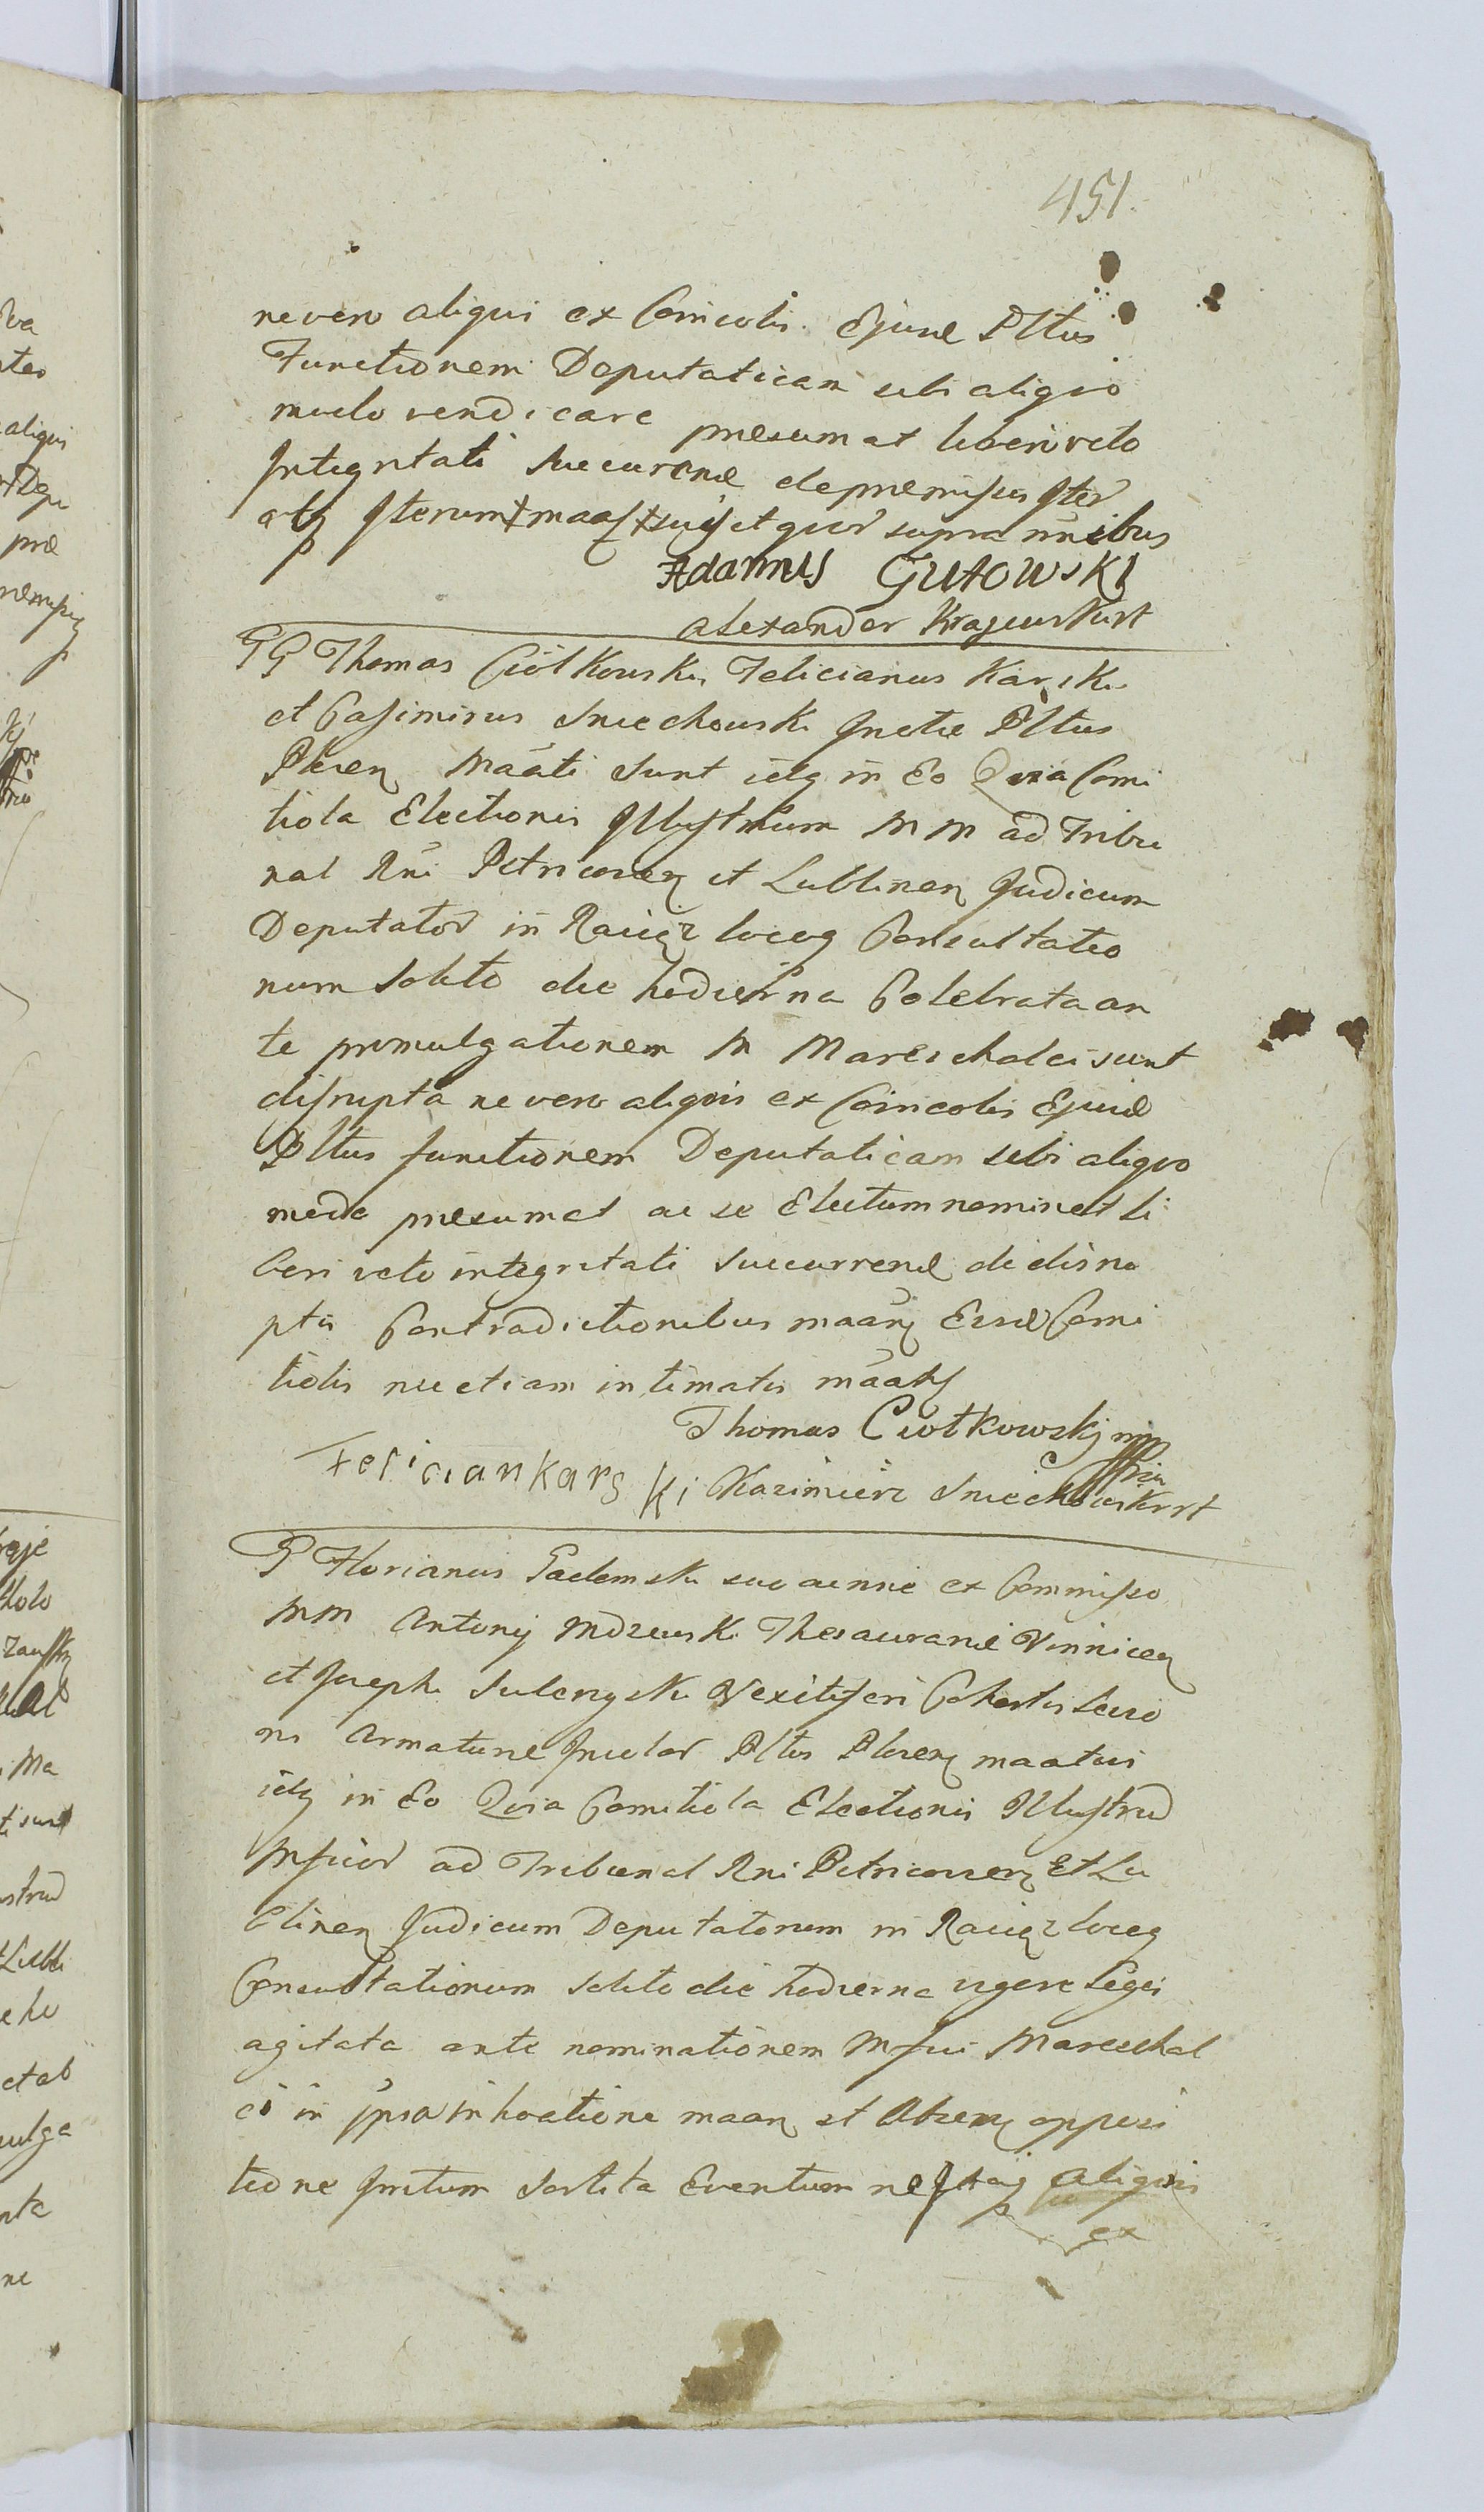 451.
ne vero aliqui ex Comicolis Ejusd Pltus
Functionem Deputaticam sibi aliqvo
modo vendicare presumat liberi veto
Integritati Succurend de premissis Iter
atq Iterum maa suis et qvor supra nnibus
Adamus Gutowski
Alexander Kraiewski rt
PP Thomas Ciółkowski, Felicianus Karski
et Casimirus Sniechowski Incolæ Pltus
Plocen Maãti Sunt idq in Eo Qvia Comi
tiola Electionis Illustrium MM ad Tribu
nal Rni Petricoven et Lublinen Judicum
Deputator in Raciąz locoq Consultatio
num Solito die hodierna Celebrata an
te promulgationem M Mareschalci sunt
disrupta ne vero aliqvis ex Comicolis Ejusd
Pltus functionem Deputaticam sibi aliqvo
modo presumat ac se Electum nominet li
beri veto integritati Succurrend de disru
ptis Contradictionibus maan Eisd Comi
tiolis nec etiam intimatis maats
Thomas Ciołkowskj mpp
Felician Karski Kazimierz Sniechowski rt
P Florianus Gadomski suo ac nnie ex Commisso
MM Antonij Mdzewski Thesaurarii Vinnicen
et Joseph Sulerzyski Vexiliferi Cohortis Levio
ris Armaturæ Incolar Pltus Plocen maatus
idq in Eo Qvia Comitiola Electionis Illustriu
Mficor ad Tribunal Rni Petricoven Et Lu
blinen Judicum Deputatorum in Raciąz locoq
Consultationum Solito die hodierna vigore Legis
agitata ante nominationem Mfici Mareschal
ci in ipsa inhoatione maan et Absen opposi
tione Irritum Sortita Eventum ne Itaq aliqvis
ex